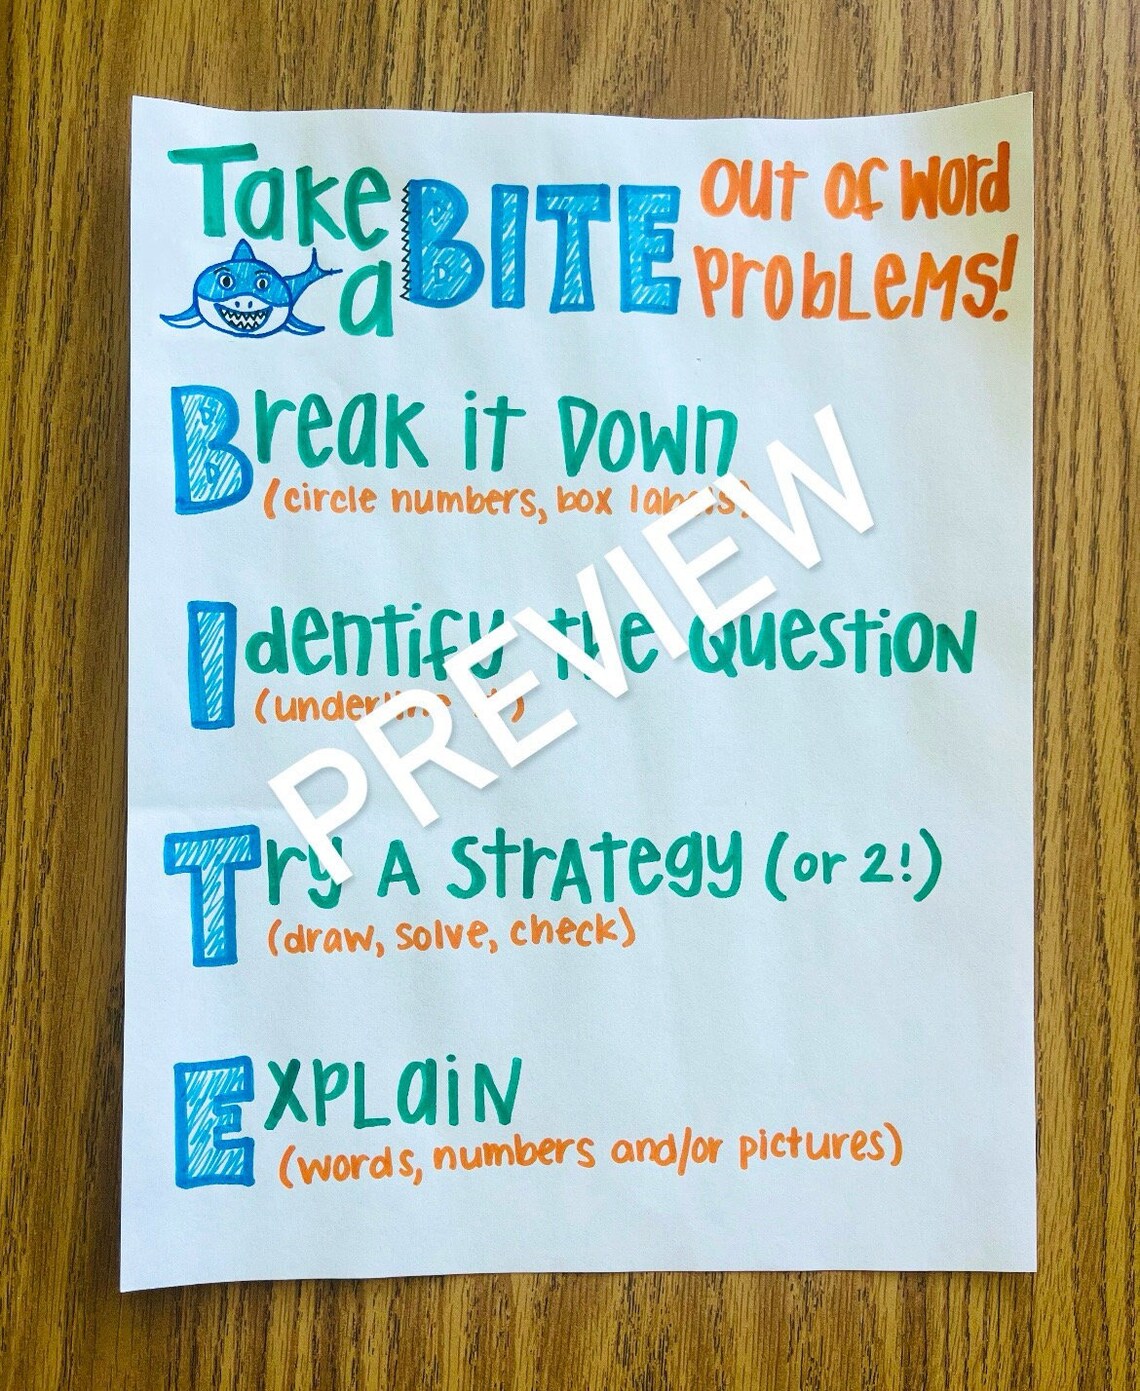 Take a BITE out of word problems!
Break it Down
(circle numbers, box labels)
Identify the Question
(underline it)
Try A Strategy (or 2!)
(draw, solve, check)
Explain
(words, numbers and/or pictures)
PREVIEW